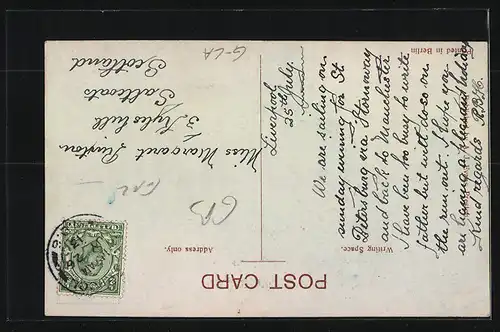 POST CARD
Writing Space.
Address only.
Printed in Berlin
Liverpool
25th July.
We are sailing on
sunday evening for St
Petersburg via Stornoway
and back to Manchester
I have been too busy to write
father but will do so on
the run out. I hope you
are having a pleasant holiday
Kind regards
Miss Margaret
3, Kyleshill
Saltcoats
Scotland